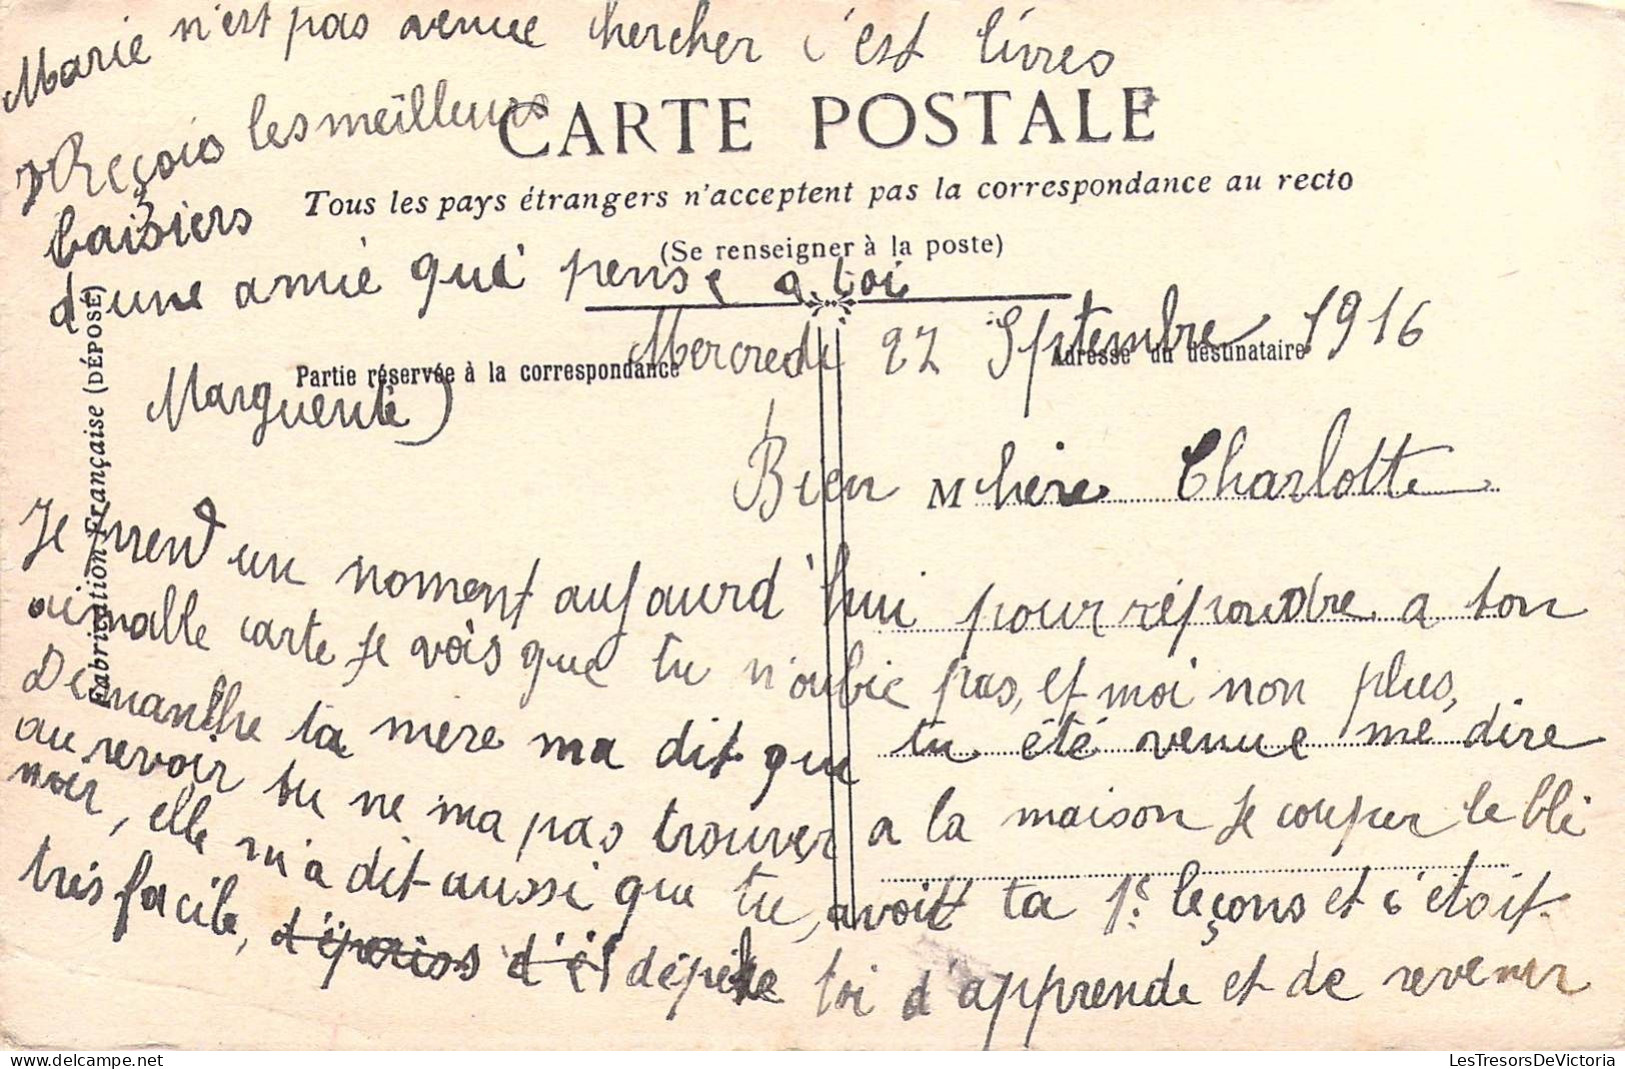 Marie n'est pas venue chercher c'est livres
Reçois les meilleurs
CARTE POSTALE
baisiers
Tous les pays étrangers n'acceptent pas la correspondance au recto
(Se renseigner à la poste)
d'une amie qui pense a toi
Mercredi 27 Sptembre 1916
Partie réservée à la correspondance
Adresse du destinataire
Marguerite
Fabrication Française (DÉPOSÉ)
Bien M chère Charlotte
Je prend un moment aujourd'hui pour répondre a ton
aimable carte je vois que tu n'oublie pas, et moi non plus,
Dimanche ta mère ma dit que tu été venue me dire
au revoir tu ne ma pas trouver a la maison je couper le blé
noir, elle m'a dit aussi que tu, avoit ta 1e. leçons et c'étoit
très facile, dépêche toi d'apprende et de revenir
LesTresorsDeVictoria